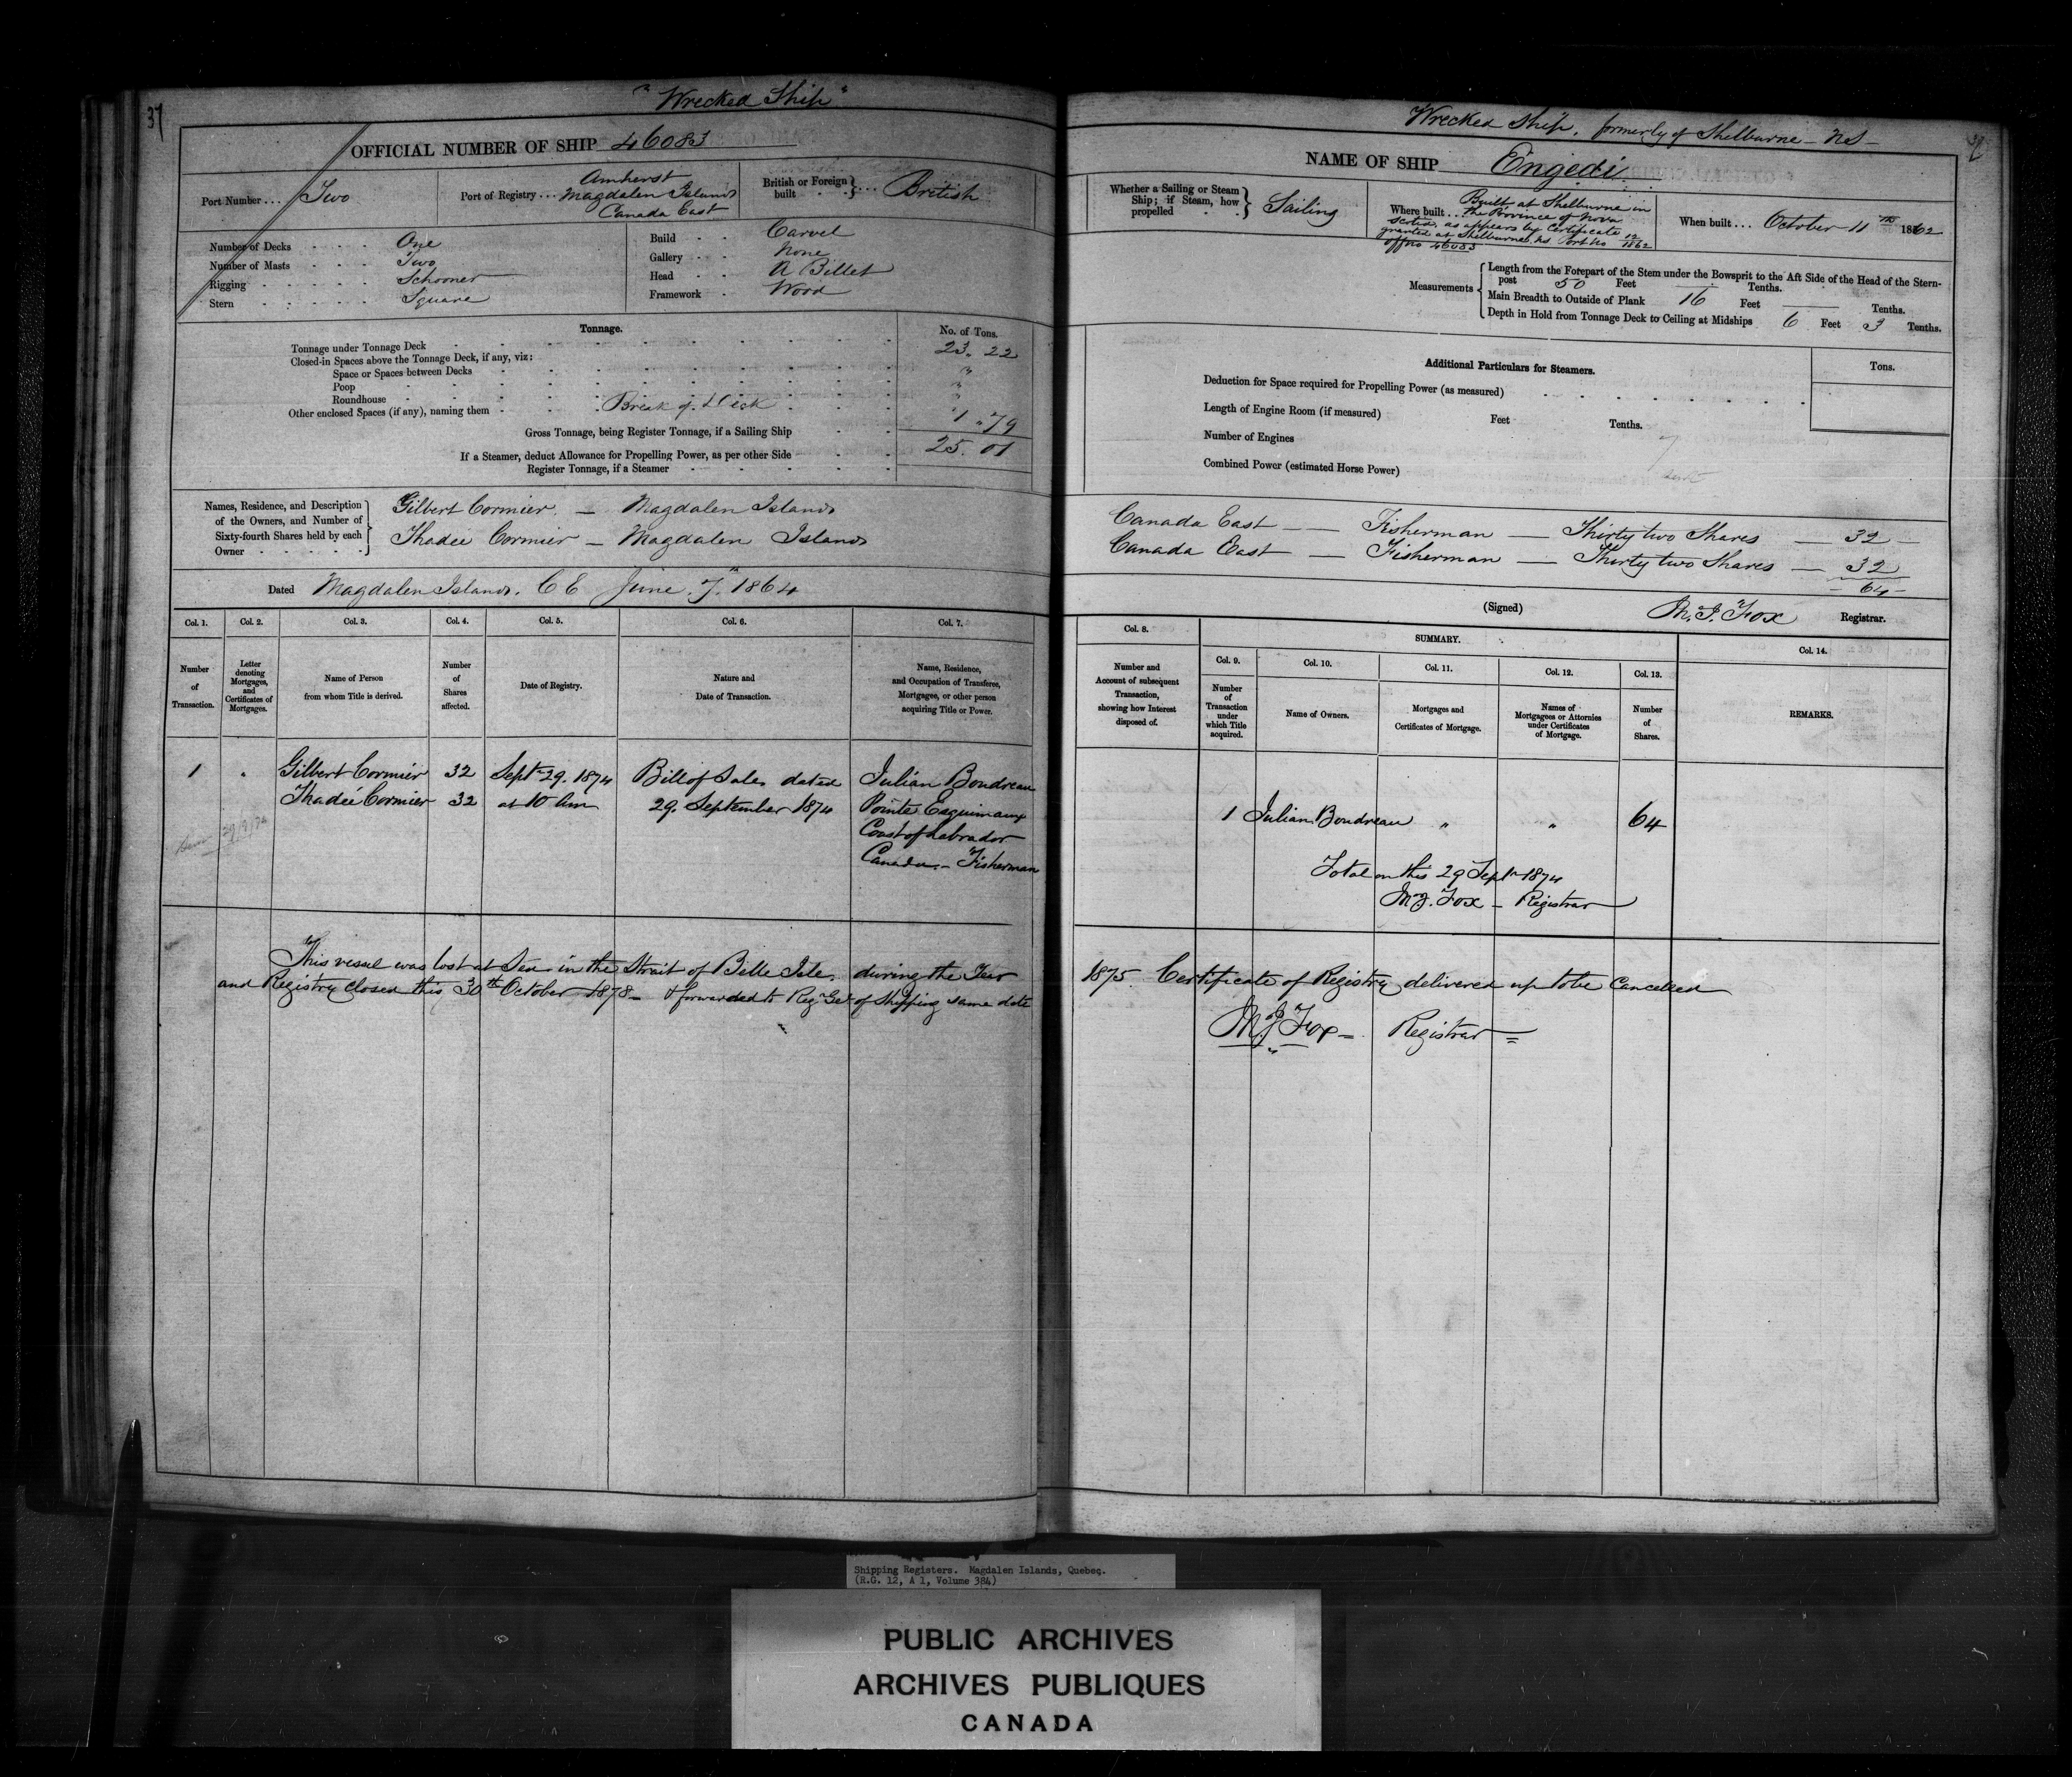 37
"Wrecked Ship"
OFFICIAL NUMBER OF SHIP 46083
Port Number ... Two
Port of Registry ... Amherst
Magdalen Islands
Canada East
British or Foreign built } ... British
Number of Decks . . . One
Number of Masts . . . Two
Rigging . . . . . Schooner
Stern . . . . . Square
Build . . Carvel
Gallery . . None
Head . . A Billet
Framework . Wood
Tonnage.
No. of Tons.
Tonnage under Tonnage Deck 23. 22
Closed-in Spaces above the Tonnage Deck, if any, viz:
Space or Spaces between Decks "
Poop "
Roundhouse "
Other enclosed Spaces (if any), naming them Break of Deck 1. 79
Gross Tonnage, being Register Tonnage, if a Sailing Ship 25. 01
If a Steamer, deduct Allowance for Propelling Power, as per other Side
Register Tonnage, if a Steamer
Names, Residence, and Description
of the Owners, and Number of
Sixty-fourth Shares held by each
Owner
Gilbert Cormier — Magdalen Islands
Thadée Cormier — Magdalen Islands
Dated Magdalen Islands. C E June. 7. 1864
Col. 1.
Col. 2.
Col. 3.
Col. 4.
Col. 5.
Col. 6.
Col. 7.
Number
of
Transaction.
Letter
denoting
Mortgages,
and
Certificates of
Mortgages.
Name of Person
from whom Title is derived.
Number
of
Shares
affected.
Date of Registry.
Nature and
Date of Transaction.
Name, Residence,
and Occupation of Transferee,
Mortgagee, or other person
acquiring Title or Power.
1 " Gilbert Cormier 32 Sept 29. 1874 Bill of Sale dated Julian Boudreau
Thadeé Cormier 32 at 10 Am 29. September 1874 Pointe Esquimaux
Coast of Labrador
Canada - Fisherman
29/9/74
This vessel was lost at Sea in the Strait of Belle Isle during the Year
and Registry Closed this 30th October 1878 - & forwarded to Reg Gel of Shipping same date
Wrecked Ship. formerly of Shelburne - NS -
37
NAME OF SHIP Engedi
Whether a Sailing or Steam
Ship; if Steam, how
propelled } Sailing
Where built ... Built at Shelburne in
the Province of Nova
Scotia, as appears by Certificate
granted at Shelburne NS Port No 12/1862
Off no 46083
When built ... October 11th 1862
Measurements
Length from the Forepart of the Stem under the Bowsprit to the Aft Side of the Head of the Stern-
post 50 Feet — Tenths.
Main Breadth to Outside of Plank 16 Feet — Tenths.
Depth in Hold from Tonnage Deck to Ceiling at Midships 6 Feet 3 Tenths.
Additional Particulars for Steamers.
Tons.
Deduction for Space required for Propelling Power (as measured)
Length of Engine Room (if measured) Feet Tenths.
Number of Engines
Combined Power (estimated Horse Power)
Canada East — Fisherman — Thirty two Shares — 32
Canada East — Fisherman — Thirty two Shares — 32
64
(Signed) M. J. Fox Registrar.
Col. 8.
SUMMARY.
Col. 9.
Col. 10.
Col. 11.
Col. 12.
Col. 13.
Col. 14.
Number and
Account of subsequent
Transaction,
showing how Interest
disposed of.
Number
of
Transaction
under
which Title
acquired.
Name of Owners.
Mortgages and
Certificates of Mortgage.
Names of
Mortgagees or Attornies
under Certificates
of Mortgage.
Number
of
Shares.
REMARKS.
1 Julian Boudreau " " 64
Total on this 29 Sept 1874
M J. Fox - Registrar
1875. Certificate of Registry delivered up to be Cancelled
M J Fox - Registrar
Shipping Registers. Magdalen Islands, Quebec.
(R.G. 12, A 1, Volume 384)
PUBLIC ARCHIVES
ARCHIVES PUBLIQUES
CANADA